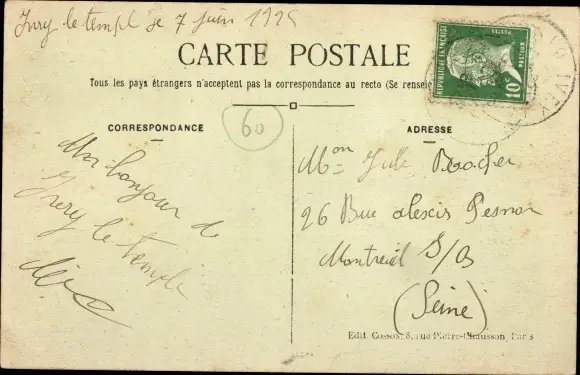 Ivry le templ le 7 juin 1925
CARTE POSTALE
Tous les pays étrangers n'acceptent pas la correspondance au recto (Se renseig
RÉPUBLIQUE FRANÇAISE
POSTES
PASTEUR
10c
CORRESPONDANCE
60
ADRESSE
Un bonjour de
Ivry le templ
Mon Jules Rocher
26 Rue alexis Pesnon
Montreuil S/Bs
(Seine)
Edit. Cosson, 8, rue Pierre-Chausson, Paris